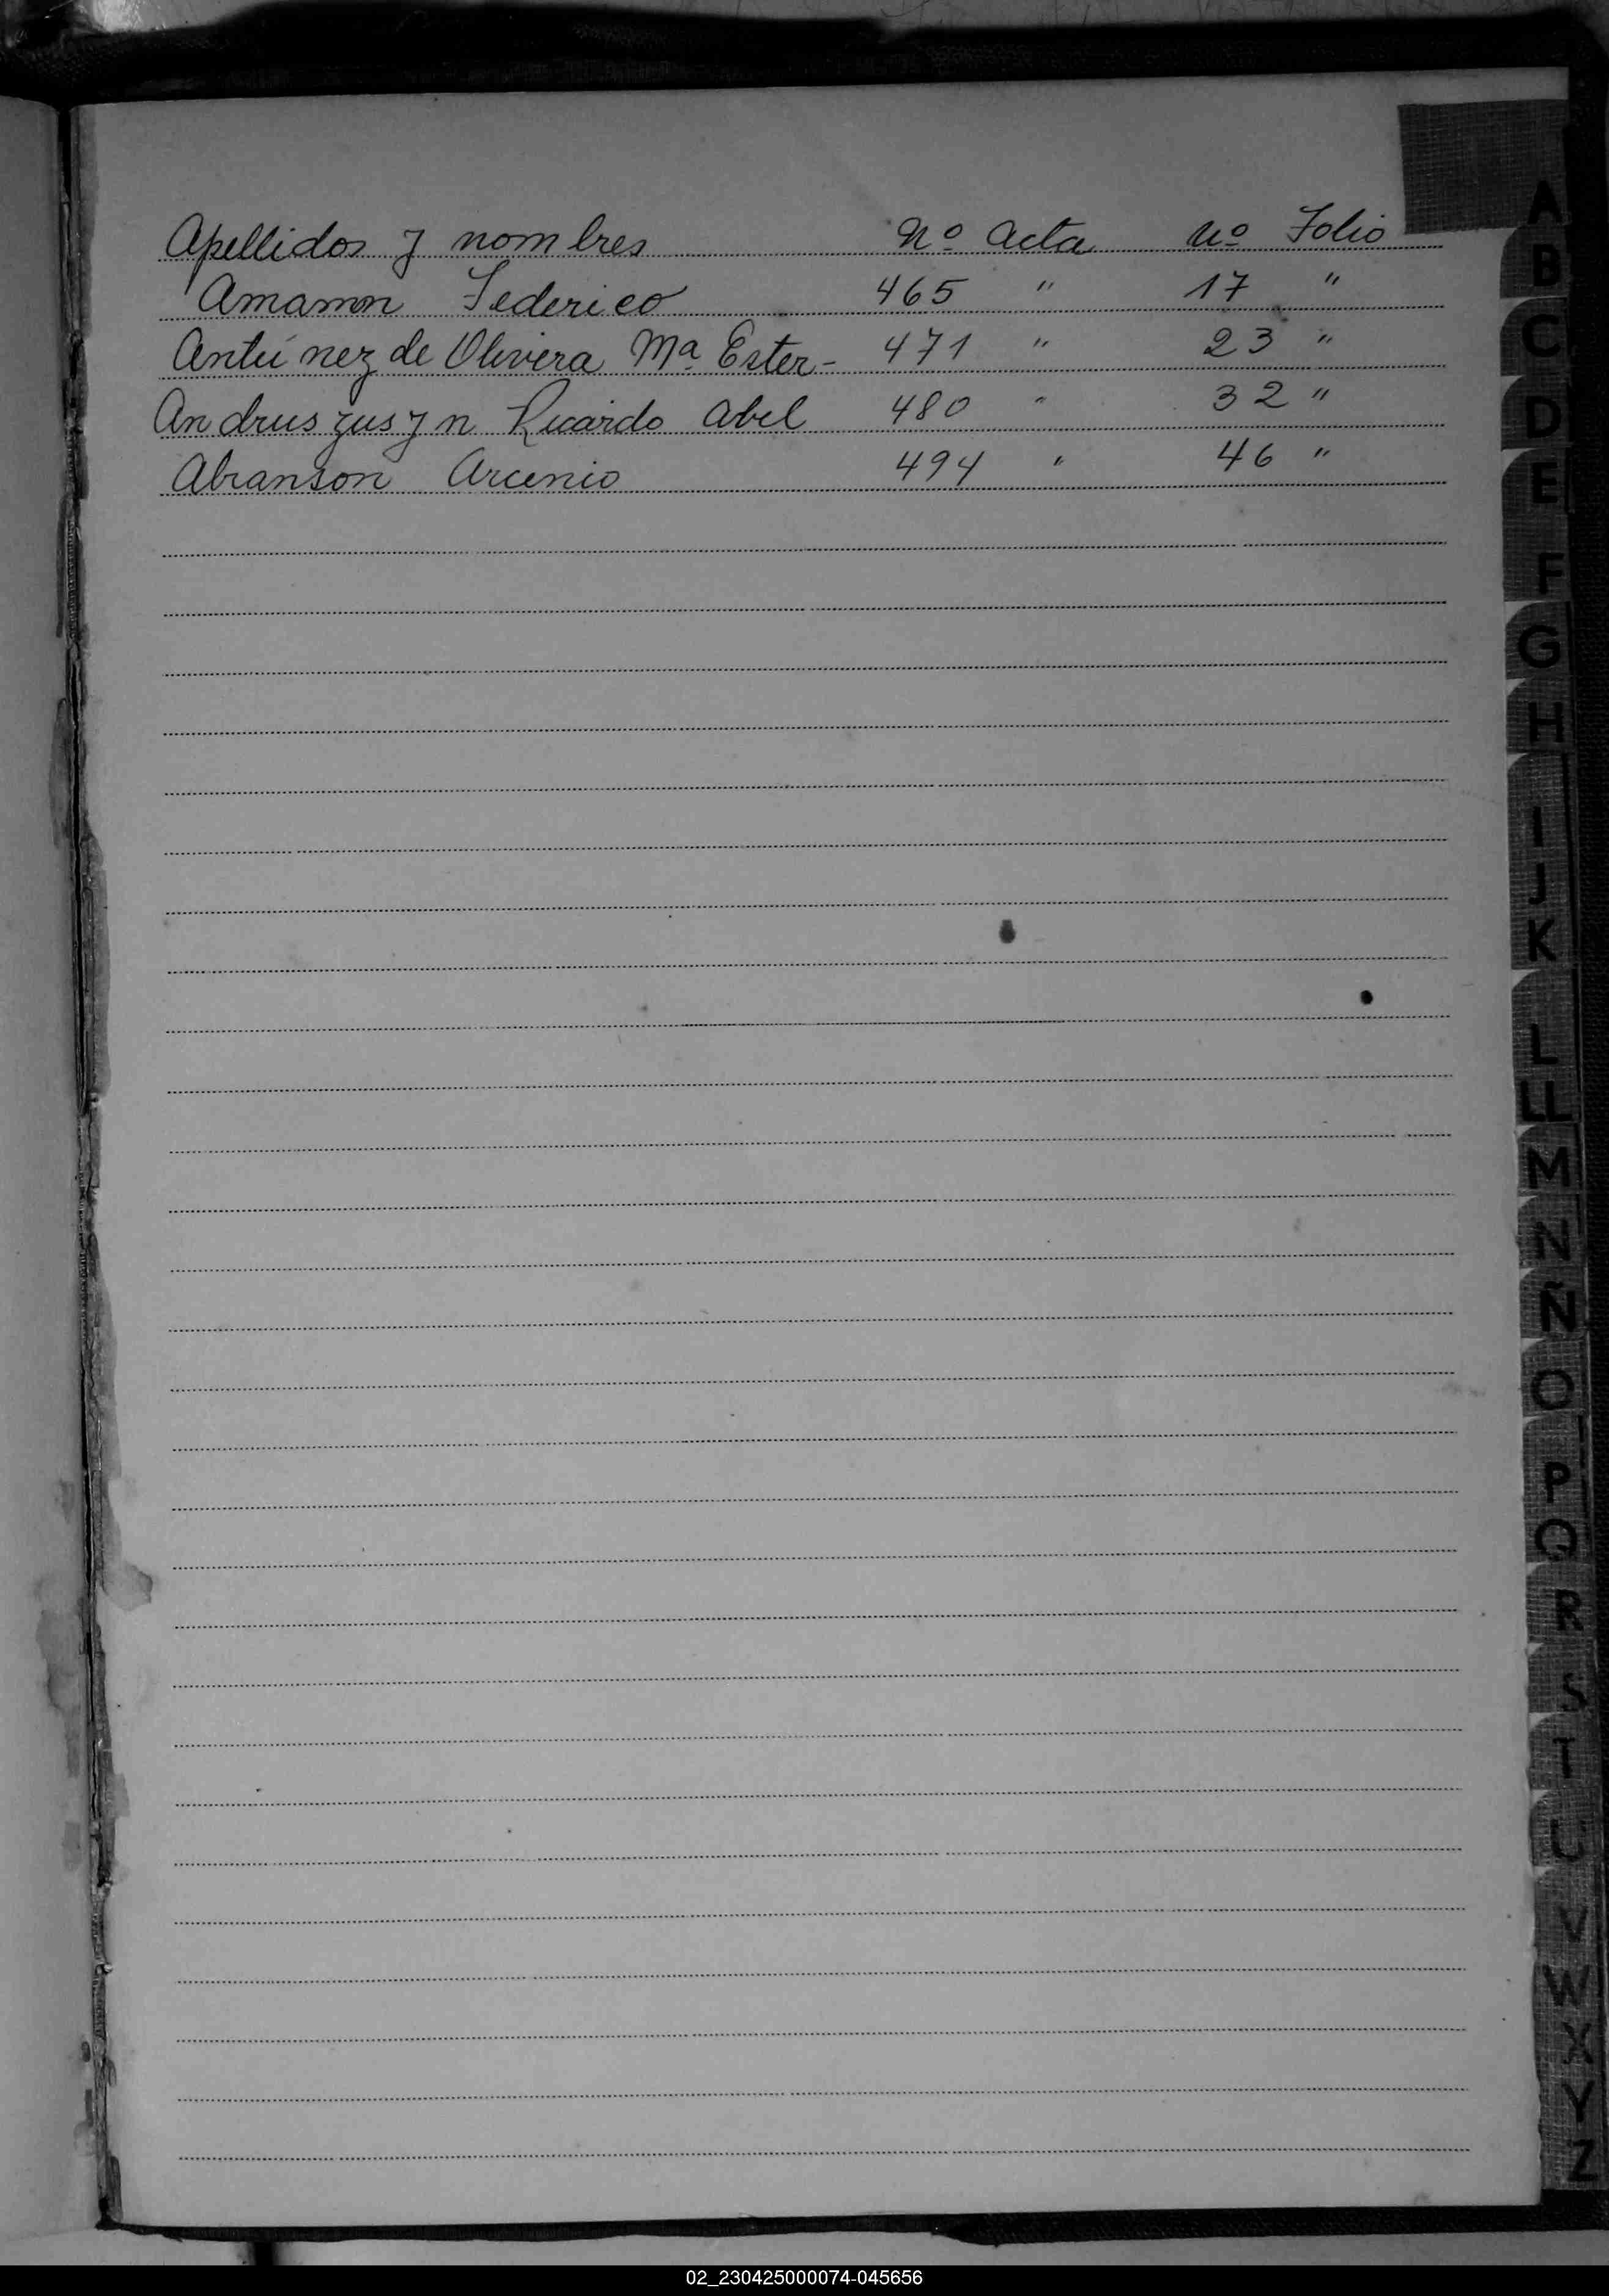 Apellidos y nombres Nº Acta Nº Folio
Amamon Federico 465 " 17 "
Antúnez de Olivera Mª Ester- 471 " 23 "
Andruszusyn Ricardo Abel 480 " 32 "
Abranson Arcenio 494 " 46 "
A
B
C
D
E
F
G
H
I
J
K
L
LL
M
N
Ñ
O
P
Q
R
S
T
U
V
W
X
Y
Z
02_230425000074-045656